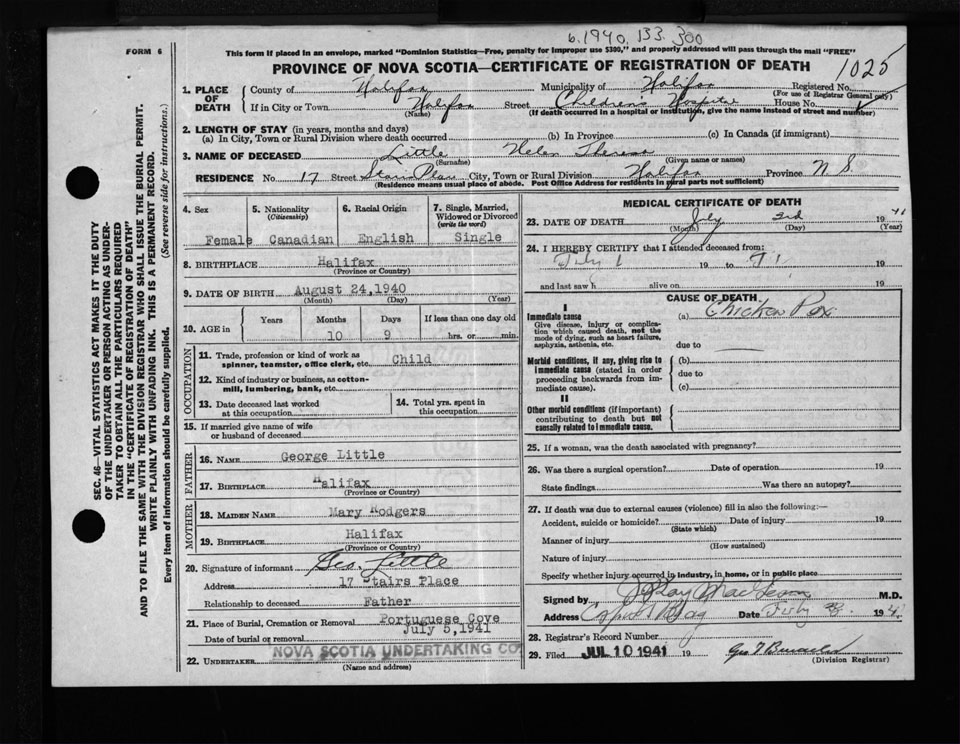 6.1940.133.300
FORM 6
This form if placed in an envelope, marked "Dominion Statistics—Free, penalty for improper use $300," and properly addressed will pass through the mail "FREE"
PROVINCE OF NOVA SCOTIA—CERTIFICATE OF REGISTRATION OF DEATH
1025
1. PLACE OF DEATH
County of Halifax Municipality of Halifax Registered No.
(For use of Registrar General only)
If in City or Town Halifax Street Children's Hospital House No.
(Name) (If death occurred in a hospital or institution, give the name instead of street and number)
2. LENGTH OF STAY (in years, months and days)
(a) In City, Town or Rural Division where death occurred (b) In Province (c) In Canada (if immigrant)
3. NAME OF DECEASED Little Helen Theresa
(Surname) (Given name or names)
RESIDENCE No. 17 Street Stairs Place City, Town or Rural Division Halifax Province N.S.
(Residence means usual place of abode. Post Office Address for residents in rural parts not sufficient)
4. Sex 5. Nationality (Citizenship) 6. Racial Origin 7. Single, Married, Widowed or Divorced (write the word)
Female Canadian English Single
8. BIRTHPLACE Halifax
(Province or Country)
9. DATE OF BIRTH August 24,1940
(Month) (Day) (Year)
10. AGE in Years Months Days If less than one day old
10 9 hrs. or min.
OCCUPATION
11. Trade, profession or kind of work as spinner, teamster, office clerk, etc. Child
12. Kind of industry or business, as cotton-mill, lumbering, bank, etc.
13. Date deceased last worked at this occupation
14. Total yrs. spent in this occupation
15. If married give name of wife or husband of deceased
FATHER
16. NAME George Little
17. BIRTHPLACE Halifax
(Province or Country)
MOTHER
18. MAIDEN NAME Mary Rodgers
19. BIRTHPLACE Halifax
(Province or Country)
20. Signature of informant Geo. Little
Address 17 Stairs Place
Relationship to deceased Father
21. Place of Burial, Cremation or Removal Portuguese Cove
Date of burial or removal July 5,1941
22. UNDERTAKER NOVA SCOTIA UNDERTAKING CO
(Name and Address)
MEDICAL CERTIFICATE OF DEATH
23. DATE OF DEATH July 3rd 1941
(Month) (Day) (Year)
24. I HEREBY CERTIFY that I attended deceased from:
July 1 19 to 19
and last saw h alive on 19
CAUSE OF DEATH
I
Immediate cause (a) Chicken Pox
Give disease, injury or complication which caused death, not the mode of dying, such as heart failure, asphyxia, asthenia, etc.
due to
Morbid conditions, if any, giving rise to immediate cause (stated in order proceeding backwards from immediate cause).
(b)
due to
(c)
II
Other morbid conditions (if important) contributing to death but not causally related to immediate cause.
25. If a woman, was the death associated with pregnancy?
26. Was there a surgical operation? Date of operation 19
State findings Was there an autopsy?
27. If death was due to external causes (violence) fill in also the following:—
Accident, suicide or homicide? Date of injury 19
(State which)
Manner of injury
(How sustained)
Nature of injury
Specify whether injury occurred in industry, in home, or in public place
Signed by M.D.
Address Date July 194
28. Registrar's Record Number
29. Filed JUL 10 1941 19
(Division Registrar)
SEC. 46—VITAL STATISTICS ACT MAKES IT THE DUTY
OF THE UNDERTAKER OR PERSON ACTING AS UNDER-
TAKER TO OBTAIN ALL THE PARTICULARS REQUIRED
IN THE "CERTIFICATE OF REGISTRATION OF DEATH"
AND TO FILE THE SAME WITH THE DIVISION REGISTRAR WHO SHALL ISSUE THE BURIAL PERMIT.
WRITE PLAINLY WITH UNFADING INK. THIS IS A PERMANENT RECORD.
Every item of information should be carefully supplied. (See reverse side for instructions.)